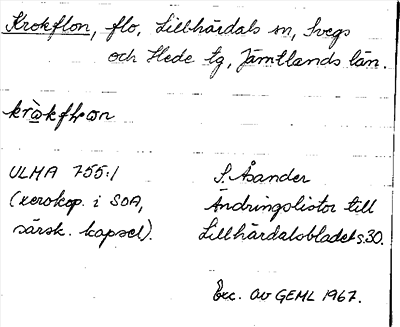 Krokflon, flo, Lillhärdals sn, Svegs
och Hede tg, Jämtlands län.
ULMA 755:1
(xerokop. i SOA,
särsk. kapsel).
S. Åsander
Ändringslistor till
Lillhärdalsbladet s. 30.
Exc. av GEML 1967.